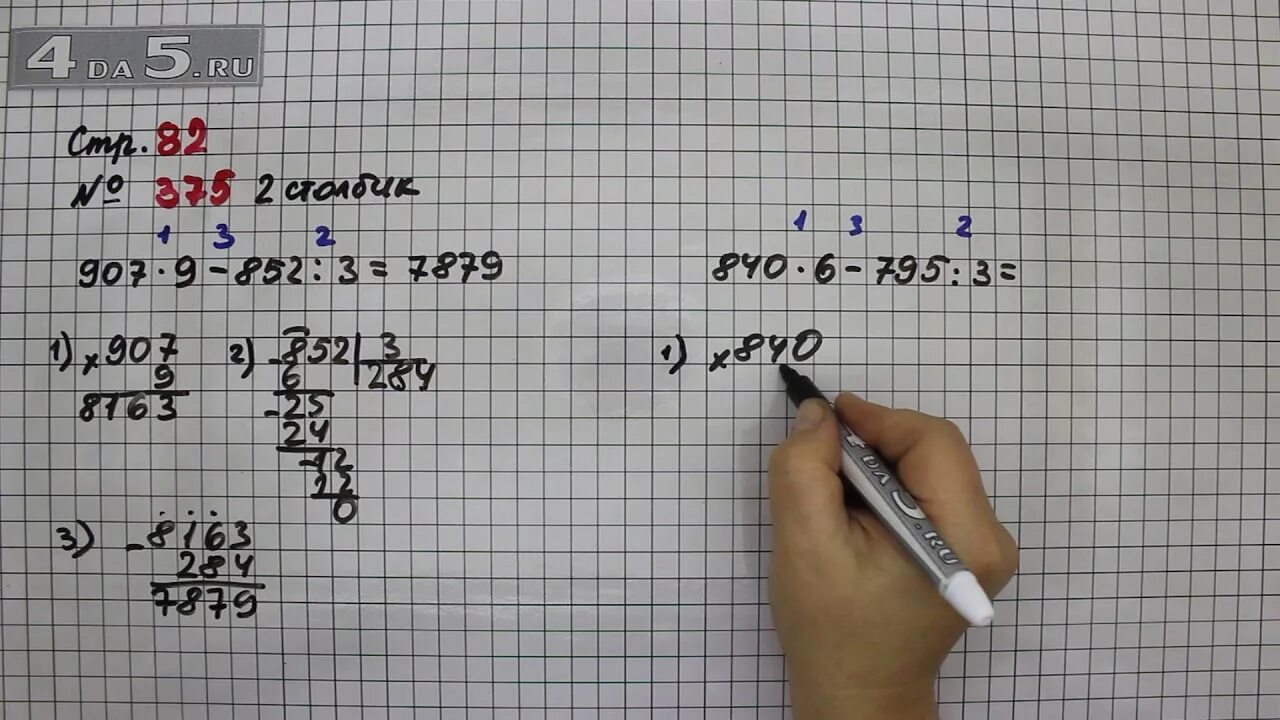 4DA5.RU
Стр. 82
№ 375 2 столбик
1 3 2
907·9-852:3=7879
1) ×907
9
8163
2) -852|3
6 284
-25
24
-12
12
0
3) -8163
284
7879
1 3 2
840·6-795:3=
1) ×840
4DA5.RU